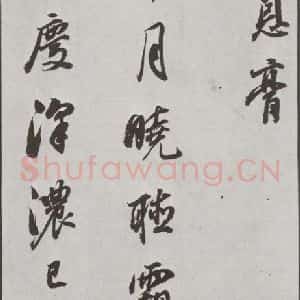 息膏
月曉聴霜
慶深濃已
Shufawang.CN